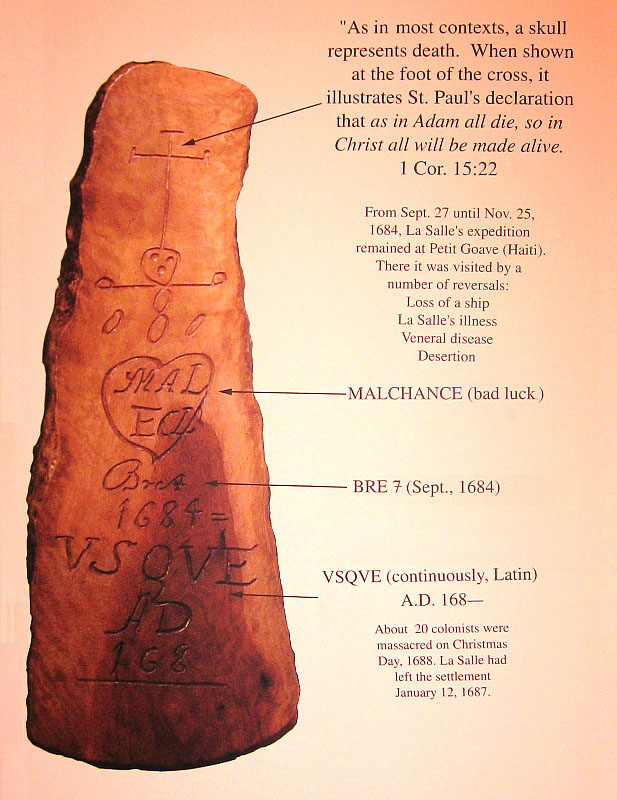 "As in most contexts, a skull
represents death. When shown
at the foot of the cross, it
illustrates St. Paul's declaration
that as in Adam all die, so in
Christ all will be made alive.
1 Cor. 15:22
From Sept. 27 until Nov. 25,
1684, La Salle's expedition
remained at Petit Goave (Haiti).
There it was visited by a
number of reversals:
Loss of a ship
La Salle's illness
Veneral disease
Desertion
MALCHANCE (bad luck)
BRE 7 (Sept., 1684)
VSQVE (continuously, Latin)
A.D. 168—
About 20 colonists were
massacred on Christmas
Day, 1688. La Salle had
left the settlement
January 12, 1687.
MAL
1684=
VSQVE
AD
168